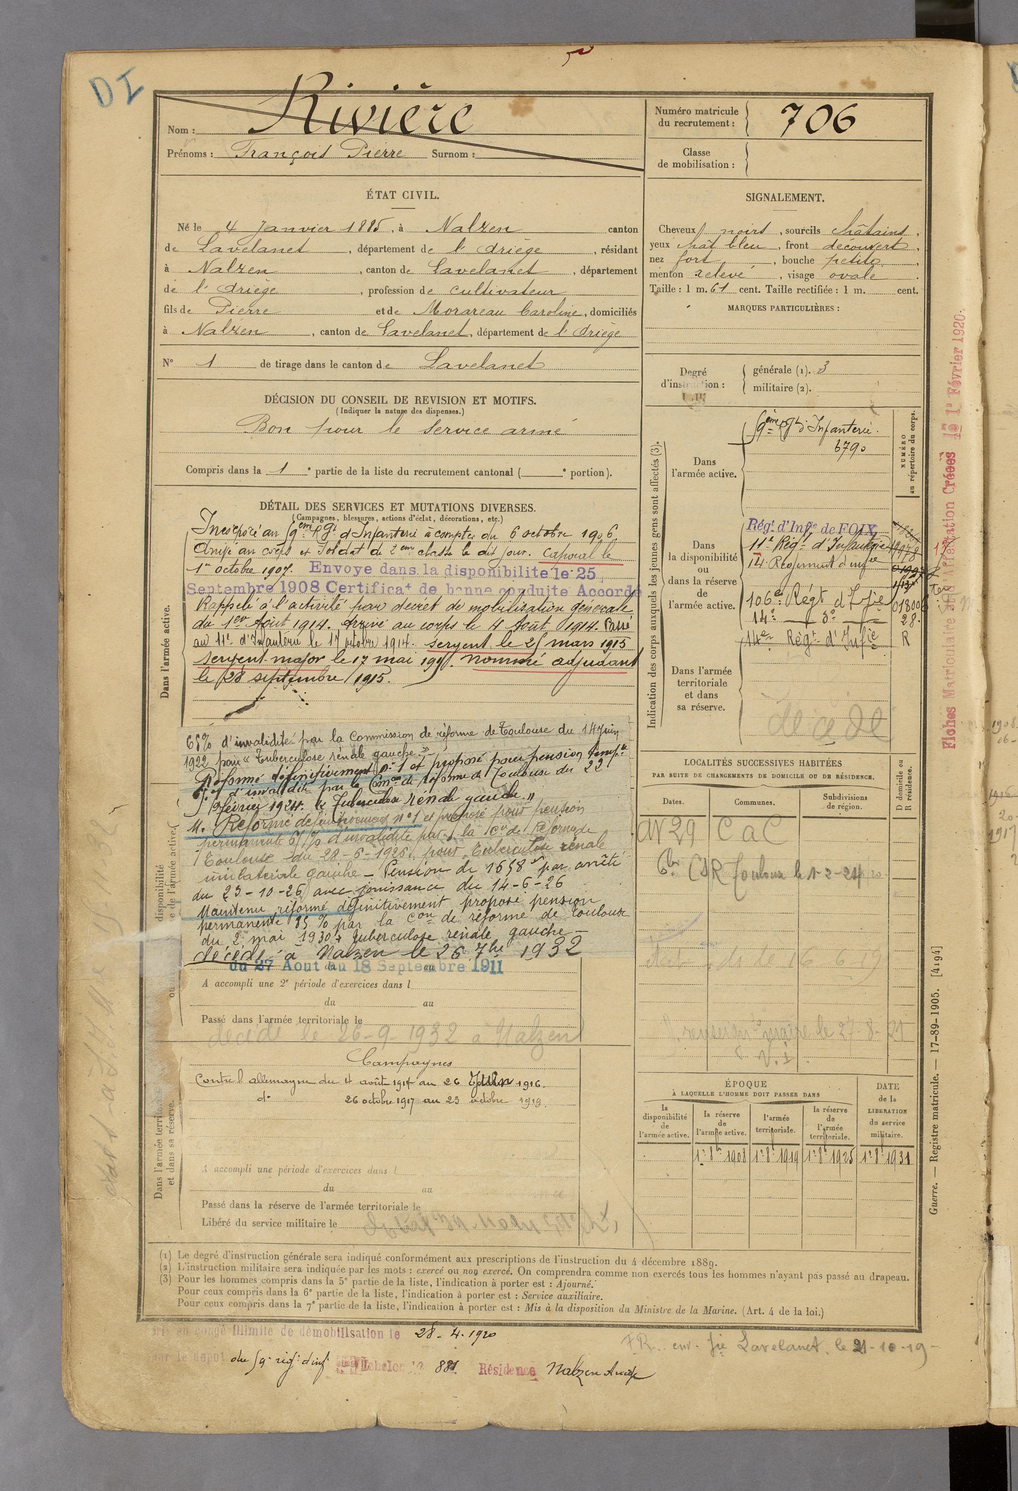 DI
Nom : Rivière
Prénoms : François Pierre Surnom :
Numéro matricule
du recrutement : 706
Classe
de mobilisation :
ÉTAT CIVIL.
Né le 4 Janvier 1885, à Nalzen canton
de Lavelanet, département de l'Ariège, résidant
à Nalzen, canton de Lavelanet, département
de l'Ariège, profession de cultivateur
fils de Pierre et de Morareau Caroline, domiciliés
à Nalzen, canton de Lavelanet, département de l'Ariège
N° 1 de tirage dans le canton de Lavelanet
DÉCISION DU CONSEIL DE REVISION ET MOTIFS.
(Indiquer la nature des dispenses.)
Bon pour le service armé
Compris dans la 1e partie de la liste du recrutement cantonal ( e portion).
SIGNALEMENT.
Cheveux noirs, sourcils châtains,
yeux chât bleu, front découvert,
nez fort, bouche petite,
menton relevé, visage ovale
Taille : 1 m. 61 cent. Taille rectifiée : 1 m. cent.
MARQUES PARTICULIÈRES :
Degré
d'instruction :
générale (1). 3
militaire (2).
DÉTAIL DES SERVICES ET MUTATIONS DIVERSES.
(Campagnes, blessures, actions d'éclat, décorations, etc.)
Dans l'armée active.
Incorporé au 59eme Rgt d'Infanterie à compter du 6 octobre 1906
Arrivé au corps et Soldat de 2eme classe le dit jour. Caporal le
1er octobre 1907. Envoye dans la disponibilite le 25
Septembre 1908 Certificat de bonne conduite Accordé
Rappelé à l'activité par décret de mobilisation générale
du 1er Août 1914. Arrivé au corps le 4 Août 1914. Passé
au 11e d'Infanterie le octobre 1914. Sergent le 25 mars 1915
Sergent major le 17 mai 1915. Nommé adjudant
le 28 septembre 1915.
65% d'invalidité par la Commission de réforme de Toulouse du 14 Juin
1922 pour "Tuberculose rénale gauche"
Réformé définitivement n° 1 et proposé pour pension tempre
d'invalidité par la Comon de Réforme de Toulouse du 22
février 1924. Tuberculose rénale gauche
Réformé définitivement n° 1 et proposé pour pension
permanente 65% d'invalidité par la 1ere Con de Réforme de
Toulouse du 28-5-1926, pour Tuberculose rénale
unilatérale gauche - Pension de 1658 f par arrêté
du 23-10-26 avec jouissance du 14-6-26
Maintenu réformé définitivement proposé pension
permanente 95% par la Con de réforme de Toulouse
du 2 mai 1930 : tuberculose rénale gauche -
décédé à Nalzen le 26 7bre 1932
du 27 Aout au 18 Septembre 1911
A accompli une 2e période d'exercices dans l
du au
Passé dans l'armée territoriale le
décédé le 26-9-1932 à Nalzen
Campagnes
Contre l'allemagne du 4 août 1914 au 26 Juin 1916.
d° 26 octobre 1917 au 23 octobre 1919.
Dans l'armée territoriale
et dans sa réserve.
A accompli une période d'exercices dans l
du au
Passé dans la réserve de l'armée territoriale le
Libéré du service militaire le
Indication des corps auxquels les jeunes gens sont affectés (3).
NUMÉRO
au répertoire du corps.
Dans
l'armée active.
59eme Rgt d'Infanterie.
6790
Dans
la disponibilité
ou
dans la réserve
de
l'armée active.
Régt d'Infie de FOIX
11e Régt d'Infanterie
14e Régiment d'infie
106e Régt d'Infie
14e d°
14e Régt d'Infie R
Dans l'armée
territoriale
et dans
sa réserve.
décédé
LOCALITÉS SUCCESSIVES HABITÉES
PAR SUITE DE CHANGEMENTS DE DOMICILE OU DE RÉSIDENCE.
Dates.
Communes.
Subdivisions
de région.
domicile ou
R résidence.
CaC
CSR Toulouse le 1-2-24
ÉPOQUE
À LAQUELLE L'HOMME DOIT PASSER DANS
la
disponibilité
de
l'armée active.
la réserve
de
l'armée active.
l'armée
territoriale.
la réserve
de
l'armée
territoriale.
DATE
de la
LIBÉRATION
du service
militaire.
1er 8bre 1908
1er 8bre 1919
1er 8bre 1925
1er 8bre 1931
Fiches Matriculaire et d'Affectation Créées le 1er Février 1920.
Guerre. — Registre matricule. — 17-89-1905. [4194]
(1) Le degré d'instruction générale sera indiqué conformément aux prescriptions de l'instruction du 4 décembre 1889.
(2) L'instruction militaire sera indiquée par les mots : exercé ou non exercé. On comprendra comme non exercés tous les hommes n'ayant pas passé au drapeau.
(3) Pour les hommes compris dans la 5e partie de la liste, l'indication à porter est : Ajourné.
Pour ceux compris dans la 6e partie de la liste, l'indication à porter est : Service auxiliaire.
Pour ceux compris dans la 7e partie de la liste, l'indication à porter est : Mis à la disposition du Ministre de la Marine. (Art. 4 de la loi.)
Mis en congé illimité de démobilisation le 28.4.1920
par le dépot du 59e régt d'infie Echelon n° 881. Résidence Nalzen Ariège
FR. env. Gie Lavelanet, le 21-10-19-